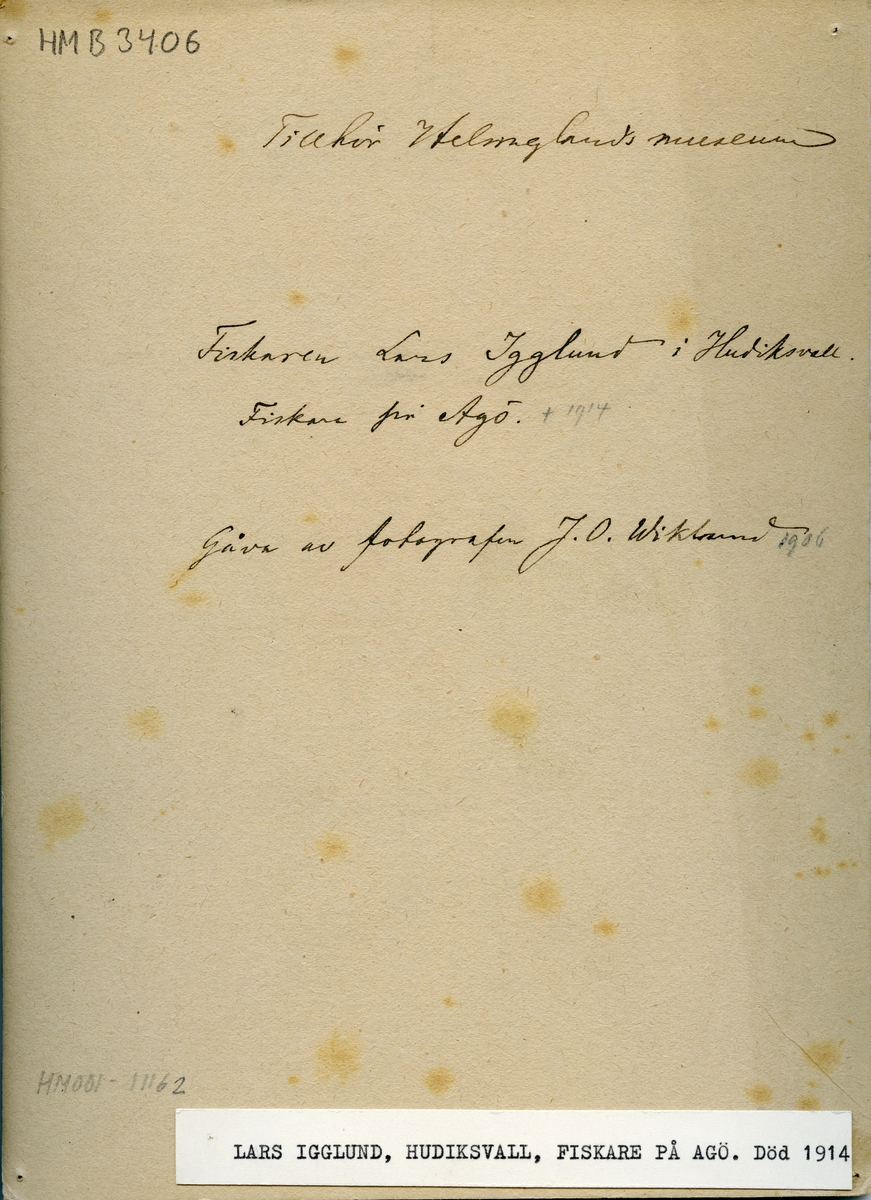 HMB3406
Tillhör Helsinglands museum
Fiskaren Lars Igglund i Hudiksvall.
Fiskare på Agö. + 1914
Gåva av fotografen J. O. Wiklund 1906
HM001-11162
LARS IGGLUND, HUDIKSVALL, FISKARE PÅ AGÖ. Död 1914